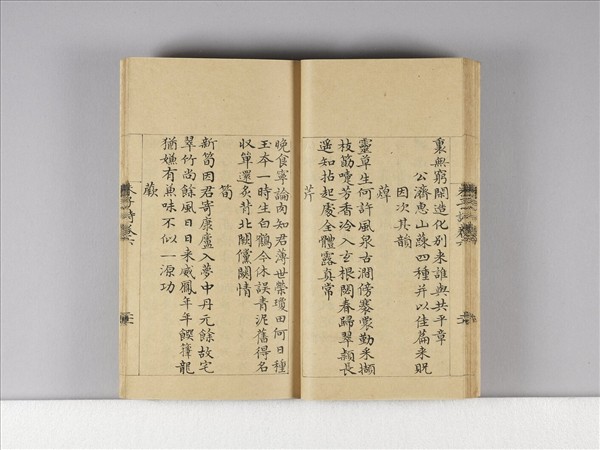 裏無窮閑造化別來誰與共平章
公濟惠山蔬四種并以佳篇來貺
因次其韻
蓴
靈草生何許風泉古澗傍褰裳勤采擷
枝筯嚏芳香冷入玄根閟春歸翠頴長
遥知拈起處全體露真常
芹
晚食寧論肉知君薄世榮瓊田何日種
玉本一時生白鶴今休誤青泥舊得名
収箪還炙背北闕儻關情
筍
新筍因君寄康廬入夢中丹元餘故宅
翠竹尚餘風日日來威鳳年年饌籜龍
猶嫌有兼味不似一源功
蕨